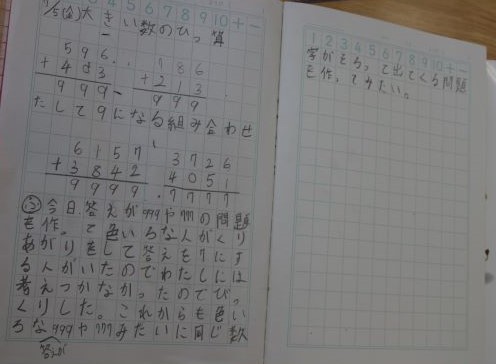 1/5(金)大きい数のひっ算
596
+403
999
786
+213
999
たして9になる組み合わせ
6157
+3842
9999
3726
4051
7777
今日、答えが999や777の問題
を作って色いろなんがくり
あがりをして答えを7にす
る人がいたのでわたしには
考えつかなかったのでびっ
くりした。これからも色い
ろな999や777みたいに同じ数
答えが
1 2 3 4 5 6 7 8 9 10 + -
字がそろって出てくる問題
を作ってみたい。